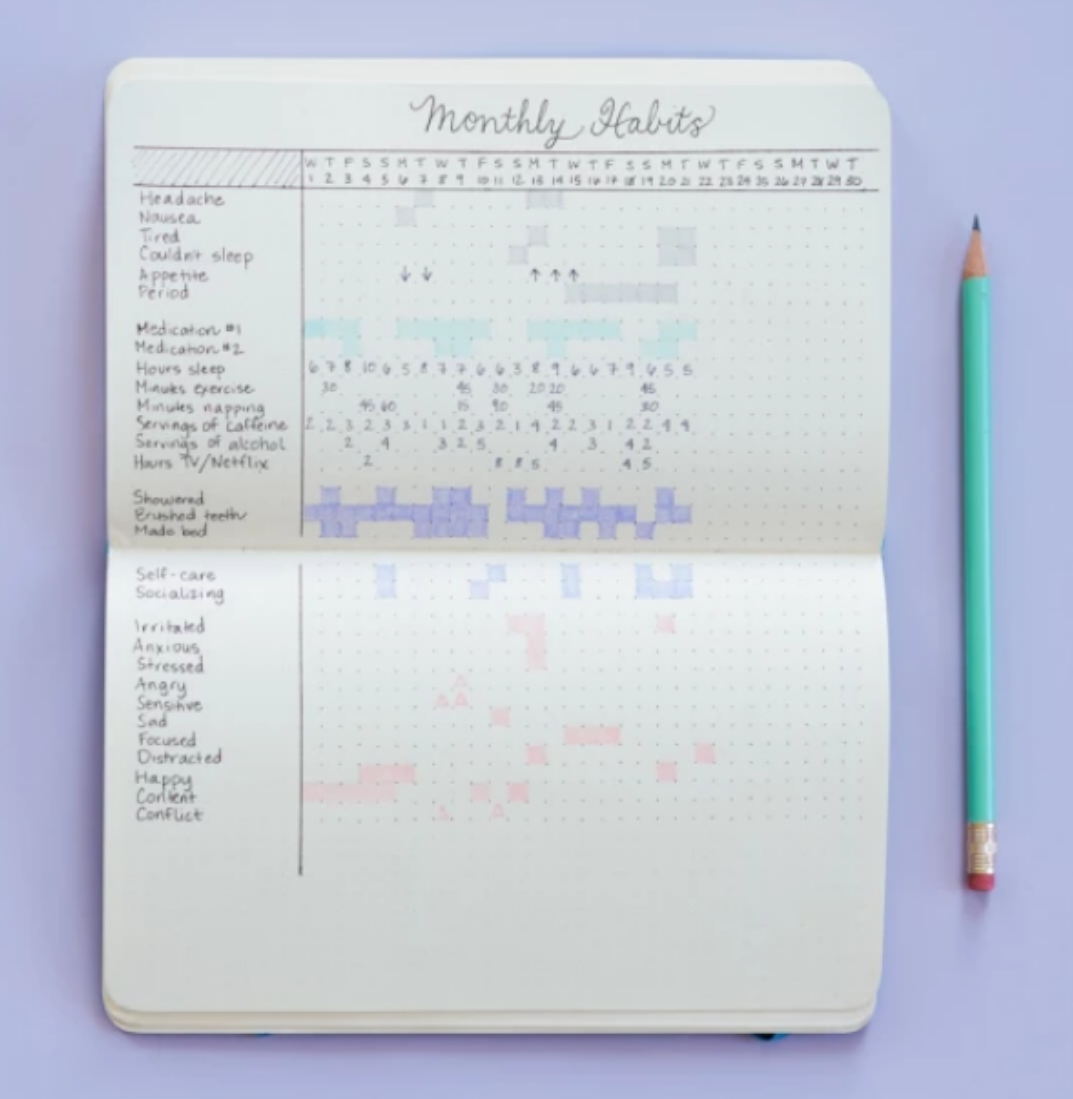 Monthly Habits
W T F S S M T W T F S S M T W T F S S M T W T F S S M T W T
1 2 3 4 5 6 7 8 9 10 11 12 13 14 15 16 17 18 19 20 21 22 23 24 25 26 27 28 29 30
Headache
Nausea
Tired
Couldn't sleep
Appetite ↓ ↓ ↑ ↑ ↑
Period
Medication #1
Medication #2
Hours sleep 6 7 8 10 6 5 8 7 7 6 6 3 8 9 6 6 7 9 6 5 5
Minutes exercise 30 45 30 20 20 45
Minutes napping 45 60 15 90 45 30
Servings of caffeine 2 2 3 2 3 3 1 1 2 3 2 1 4 2 2 3 1 2 2 4 4
Servings of alcohol 2 4 3 2 5 4 3 4 2
Hours TV/Netflix 2 8 8 5 4 5
Showered
Brushed teeth
Made bed
Self-care
Socializing
Irritated
Anxious
Stressed
Angry
Sensitive
Sad
Focused
Distracted
Happy
Content
Conflict